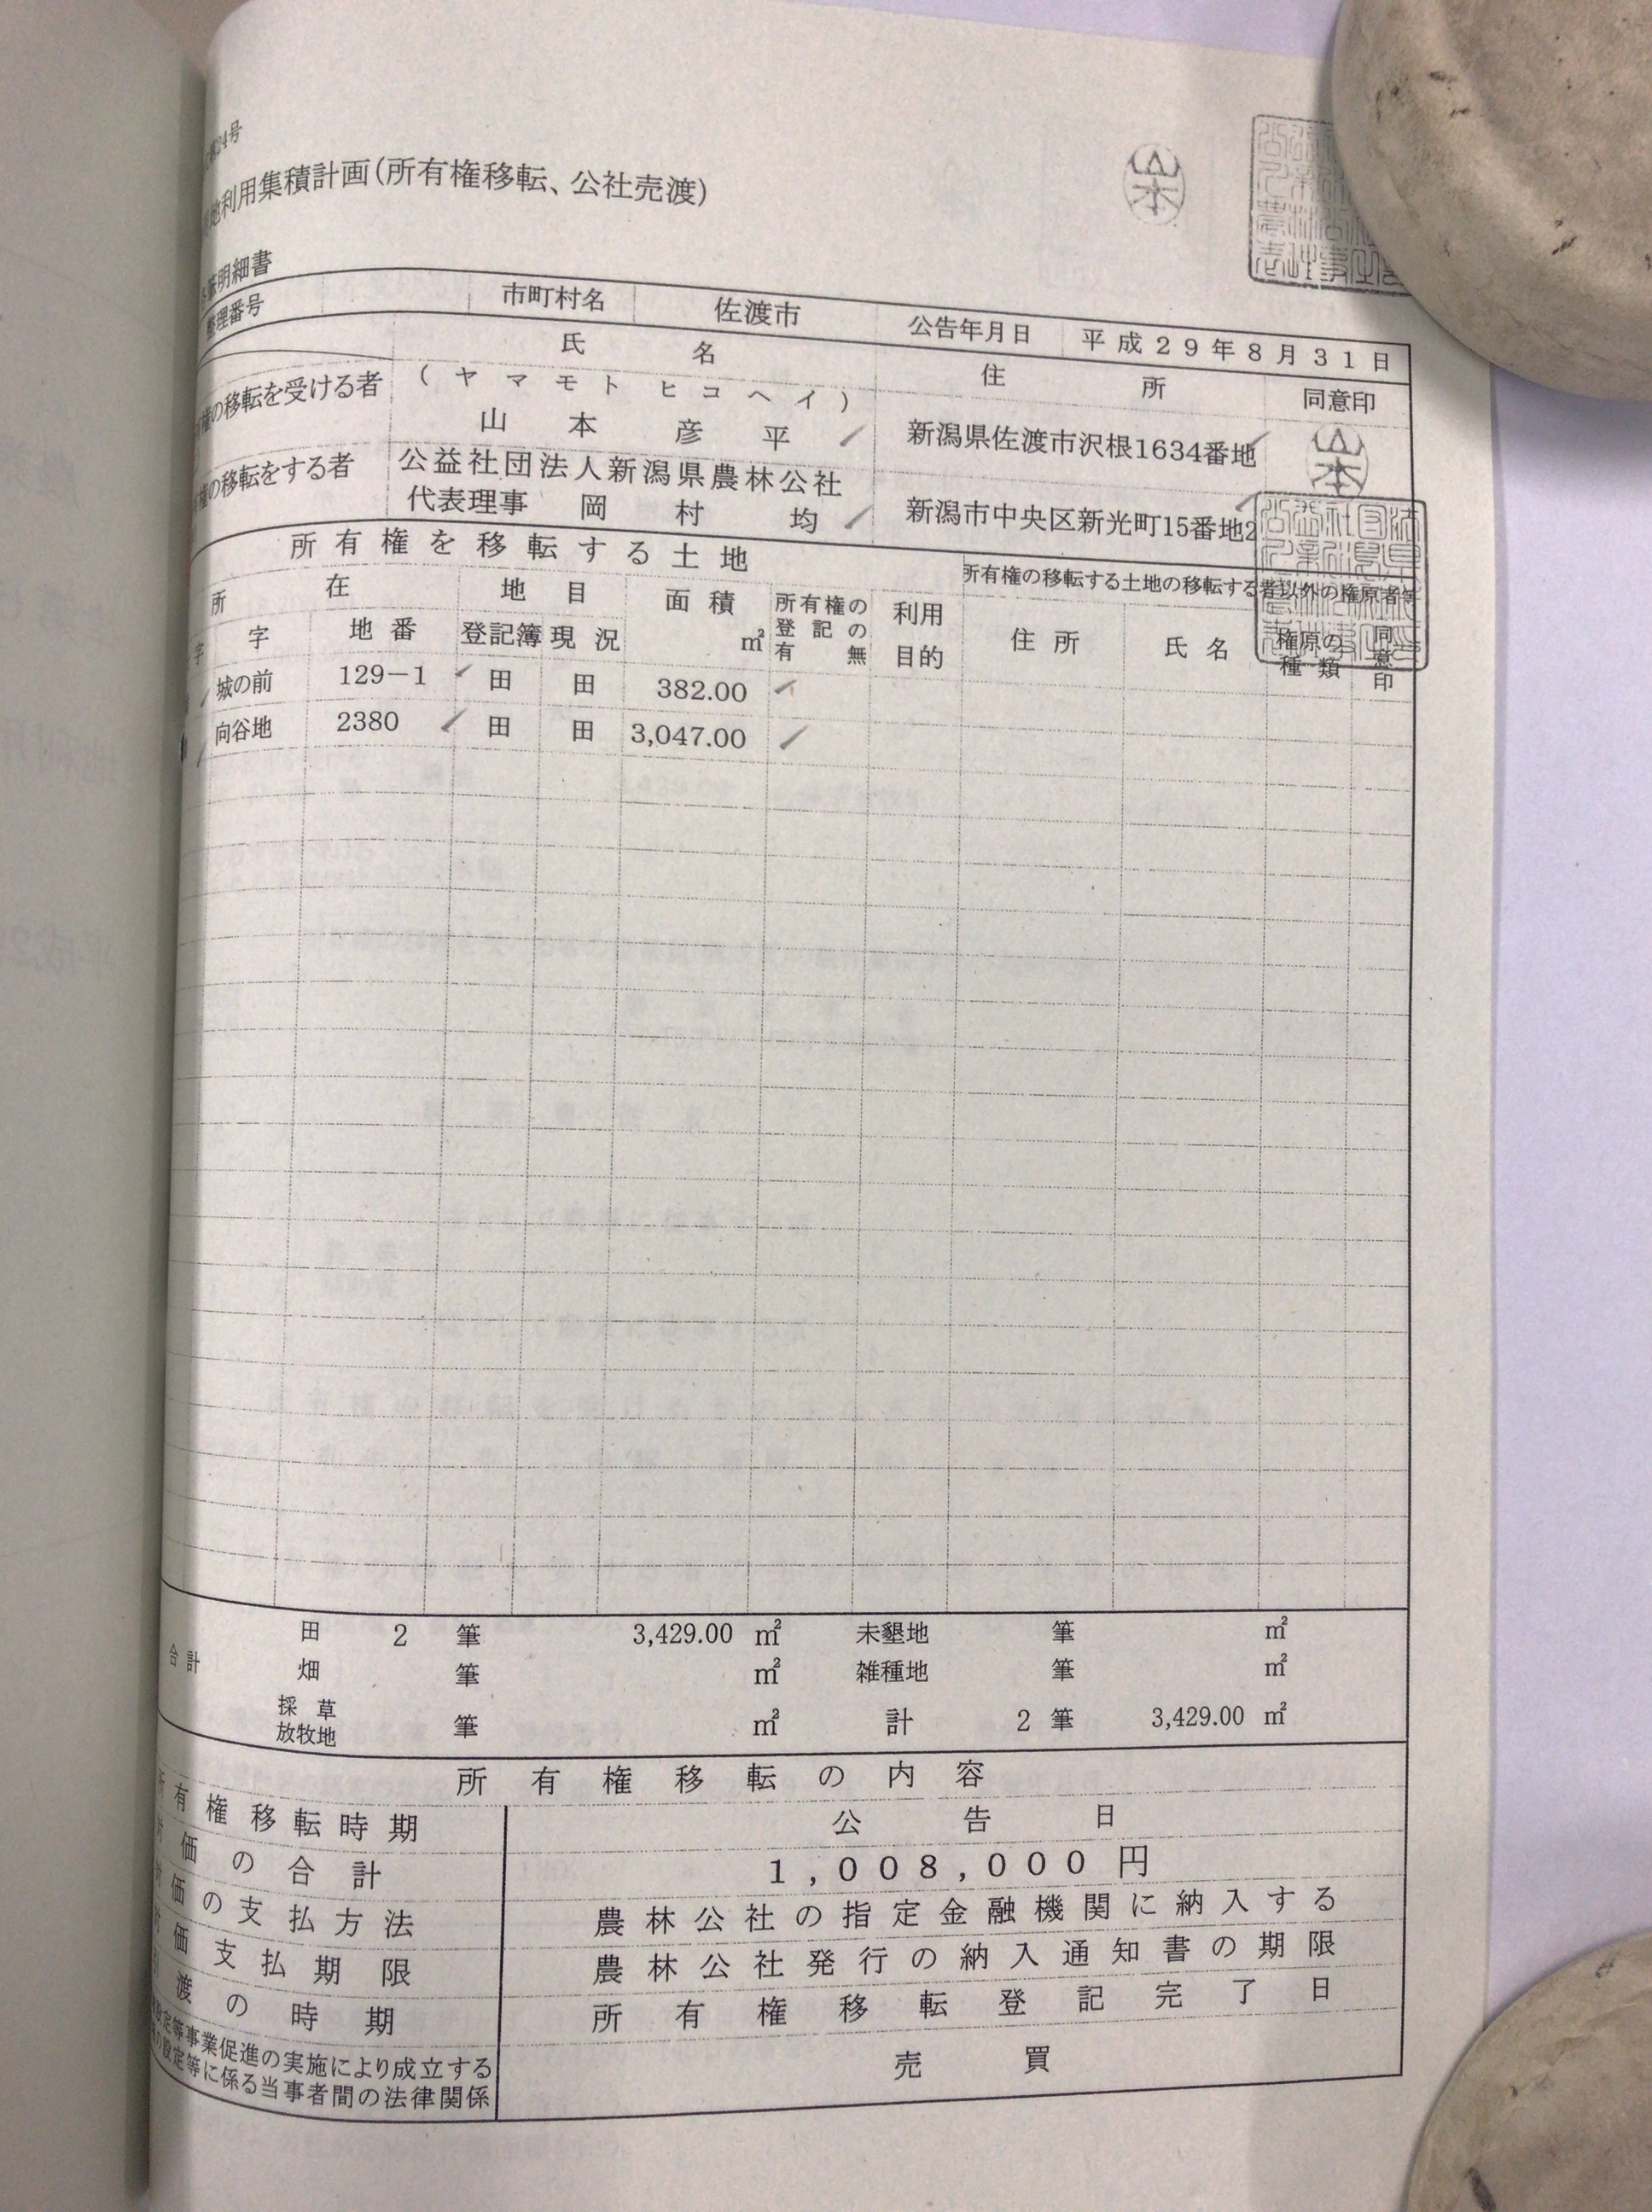 24号
地利用集積計画(所有権移転、公社売渡)
明細書
整理番号 市町村名 佐渡市 公告年月日 平成29年8月31日
氏名 住所 同意印
権の移転を受ける者 (ヤマモト ヒコヘイ)
山本彦平 新潟県佐渡市沢根1634番地 山本
権の移転をする者 公益社団法人新潟県農林公社
代表理事 岡村 均 新潟市中央区新光町15番地2
所有権を移転する土地 所有権の移転する土地の移転する者以外の権原者等
所在 地目 面積 ㎡ 所有権の登記の有無 利用目的 住所 氏名 権原の種類 同意印
字 字 地番 登記簿 現況
城の前 129-1 田 田 382.00
向谷地 2380 田 田 3,047.00
合計 田 2 筆 3,429.00 ㎡ 未墾地 筆 ㎡
畑 筆 ㎡ 雑種地 筆 ㎡
採草放牧地 筆 ㎡ 計 2 筆 3,429.00 ㎡
所有権移転の内容
所有権移転時期 公告日
対価の合計 1,008,000円
対価の支払方法 農林公社の指定金融機関に納入する
対価支払期限 農林公社発行の納入通知書の期限
引渡の時期 所有権移転登記完了日
設定等事業促進の実施により成立する
の設定等に係る当事者間の法律関係 売買